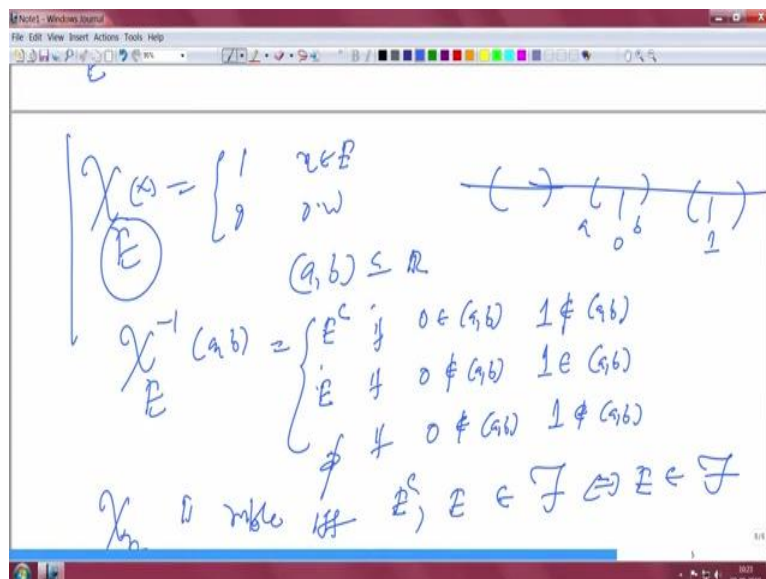 Note1 - Windows Journal
File Edit View Insert Actions Tools Help
E
χ_E (x) = { 1 x ∈ E
0 o.w
( ) a ( 0 ) b ( 1 )
(a, b) ⊆ ℝ
χ_E^{-1} (a, b) = { E^c if 0 ∈ (a, b) 1 ∉ (a, b)
E if 0 ∉ (a, b) 1 ∈ (a, b)
φ if 0 ∉ (a, b) 1 ∉ (a, b)
is mble iff E^c, E ∈ F ⇔ E ∈ F
10:23